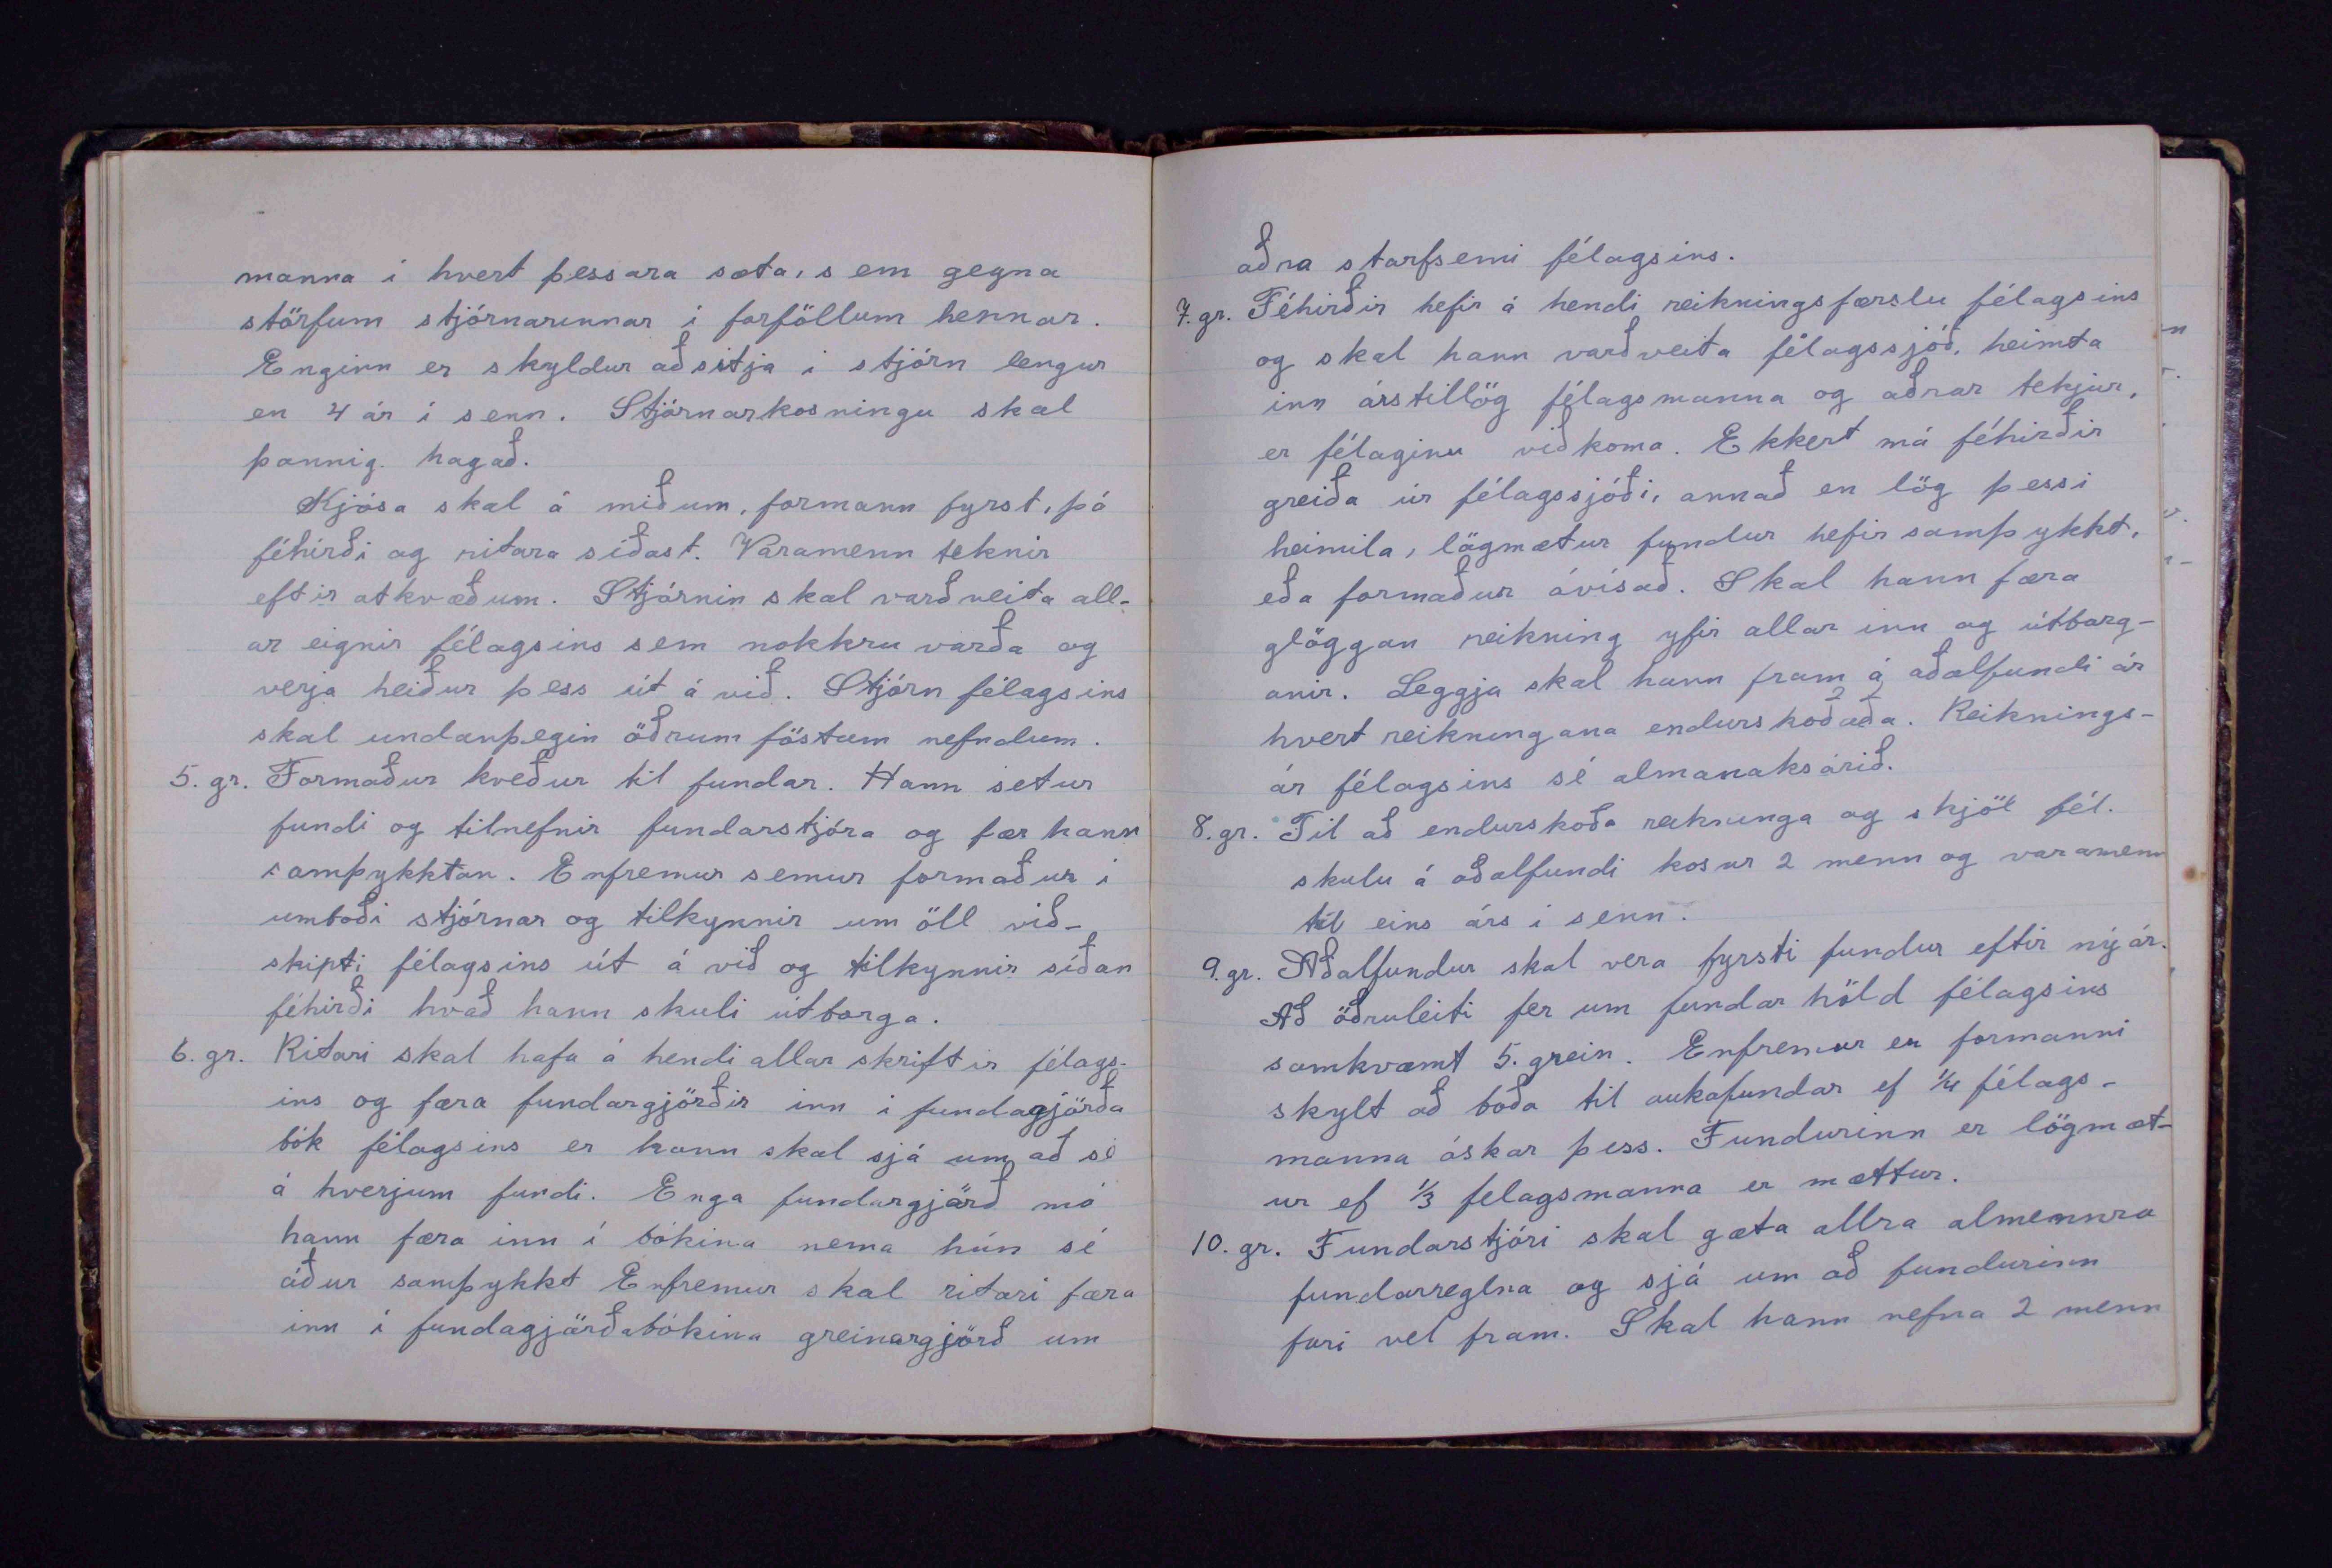 manna í hvert þessara sæta, sem gegna
störfum stjórnarinnar í forföllum hennar.
Enginn er skyldur að sitja í stjórn lengur
en 4 ár í senn. Stjórnarkosningu skal
þannig hagað.
Kjósa skal á miðum, formann fyrst, þá
féhirði og ritara síðast. Varamenn teknir
eftir atkvæðum. Stjórnin skal varðveita all-
ar eignir félagsins sem nokkru varða og
verja heiður þess út á við. Stjórn félagsins
skal undanþegin öðrum föstum nefndum.
5. gr. Formaður kveður til fundar. Hann setur
fundi og tilnefnir fundarstjóra og fær hann
samþykktan. Enfremur semur formaður í
umboði stjórnar og tilkynnir um öll við-
skipti félagsins út á við og tilkynnir síðan
féhirði hvað hann skuli útborga.
6. gr. Ritari skal hafa á hendi allar skriftir félags-
ins og færa fundargjörðir inn í fundagjörða
bók félagsins er hann skal sjá um að sé
á hverjum fundi. Enga fundargjörð má
hann færa inn í bókina nema hún sé
áður samþykkt Enfremur skal ritari færa
inn í fundagjörðabókina greinargjörð um
aðra starfsemi félagsins.
7. gr. Féhirðir hefir á hendi reikningsfærslu félagsins
og skal hann varðveita félagssjóð, heimta
inn árstillög félagsmanna og aðrar tekjur,
er félaginu viðkoma. Ekkert má féhirðir
greiða úr félagssjóði, annað en lög þessi
heimila, lögmætur fundur hefir samþykkt,
eða formaður ávísað. Skal hann færa
glöggan reikning yfir allar inn og útborg-
anir. Leggja skal hann fram á aðalfundi ár
hvert reikningana endurskoðaða. Reiknings-
ár félagsins sé almanaksárið.
8. gr. Til að endurskoða reikninga og skjöl fél.
skulu á aðalfundi kosnr 2 menn og varamenn
til eins árs í senn.
9. gr. Aðalfundur skal vera fyrsti fundur eftir nýár.
Að öðruleiti fer um fundarhöld félagsins
samkvæmt 5. grein. Enfremur er formanni
skylt að boða til aukafundar ef 1/4 félags-
manna óskar þess. Fundurinn er lögmæt-
ur ef 1/3 félagsmanna er mættur.
10. gr. Fundarstjóri skal gæta allra almennra
fundarreglna og sjá um að fundurinn
fari vel fram. Skal hann nefna 2 menn